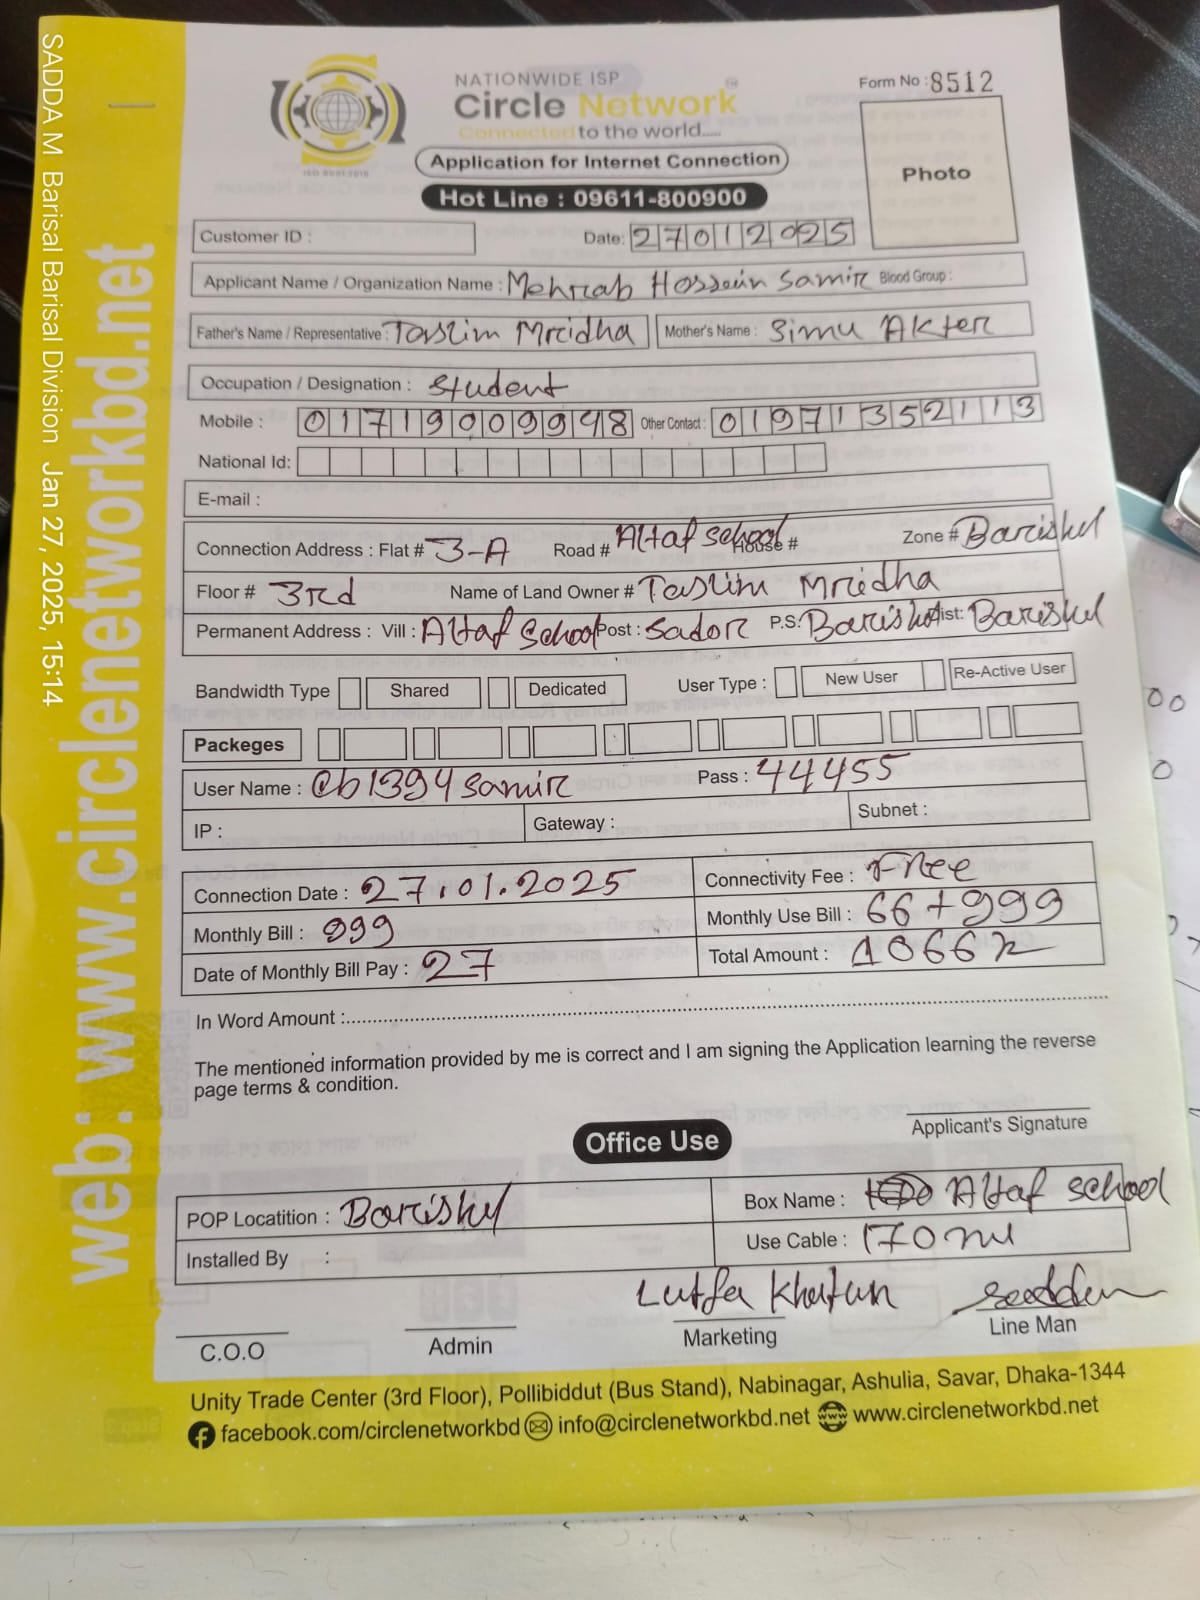 SADDA M Barisal Barisal Division Jan 27, 2025, 15:14
web: www.circlenetworkbd.net
NATIONWIDE ISP
Circle Network
Connected to the world.....
ISO 9001:2015
Application for Internet Connection
Hot Line : 09611-800900
Form No : 8512
Photo
Customer ID :
Date: 27012025
Applicant Name / Organization Name : Mehrab Hossein Samir Blood Group :
Father's Name / Representative : Taslim Mridha Mother's Name : Simu Akter
Occupation / Designation : Student
Mobile : 01719009948 Other Contact : 01971352113
National Id:
E-mail :
Connection Address : Flat # 3-A Road # Altaf School House # Zone # Barishal
Floor # 3rd Name of Land Owner # Taslim Mridha
Permanent Address : Vill : Altaf School Post : Sador P.S: Barishal Dist: Barishal
Bandwidth Type Shared Dedicated User Type : New User Re-Active User
Packeges
User Name : @b1394samir Pass : 44455
IP : Gateway : Subnet :
Connection Date : 27.01.2025 Connectivity Fee : Free
Monthly Bill : 999 Monthly Use Bill : 66+999
Date of Monthly Bill Pay : 27 Total Amount : 1066
In Word Amount :
The mentioned information provided by me is correct and I am signing the Application learning the reverse
page terms & condition.
Applicant's Signature
Office Use
POP Locatition : Barishal Box Name : Altaf School
Installed By : Use Cable : 170 m
Lutfa Khatun
C.O.O Admin Marketing Line Man
Unity Trade Center (3rd Floor), Pollibiddut (Bus Stand), Nabinagar, Ashulia, Savar, Dhaka-1344
facebook.com/circlenetworkbd info@circlenetworkbd.net www.circlenetworkbd.net